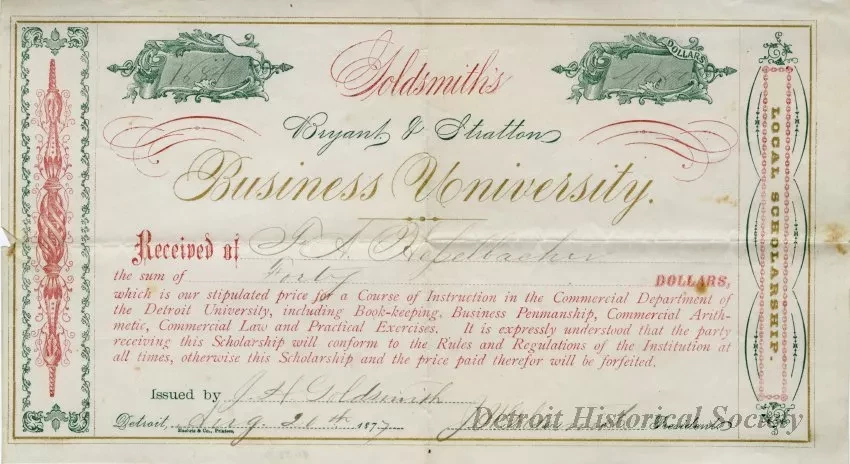 DOLLARS
Goldsmith's
Bryant & Stratton
Business University.
LOCAL SCHOLARSHIP.
Received of
the sum of Forty DOLLARS,
which is our stipulated price for a Course of Instruction in the Commercial Department of
the Detroit University, including Book-keeping, Business Penmanship, Commercial Arith-
metic, Commercial Law and Practical Exercises. It is expressly understood that the party
receiving this Scholarship will conform to the Rules and Regulations of the Institution at
all times, otherwise this Scholarship and the price paid therefor will be forfeited.
Issued by J. H. Goldsmith
Detroit, Aug. 20th 1877 President
Detroit Historical Society